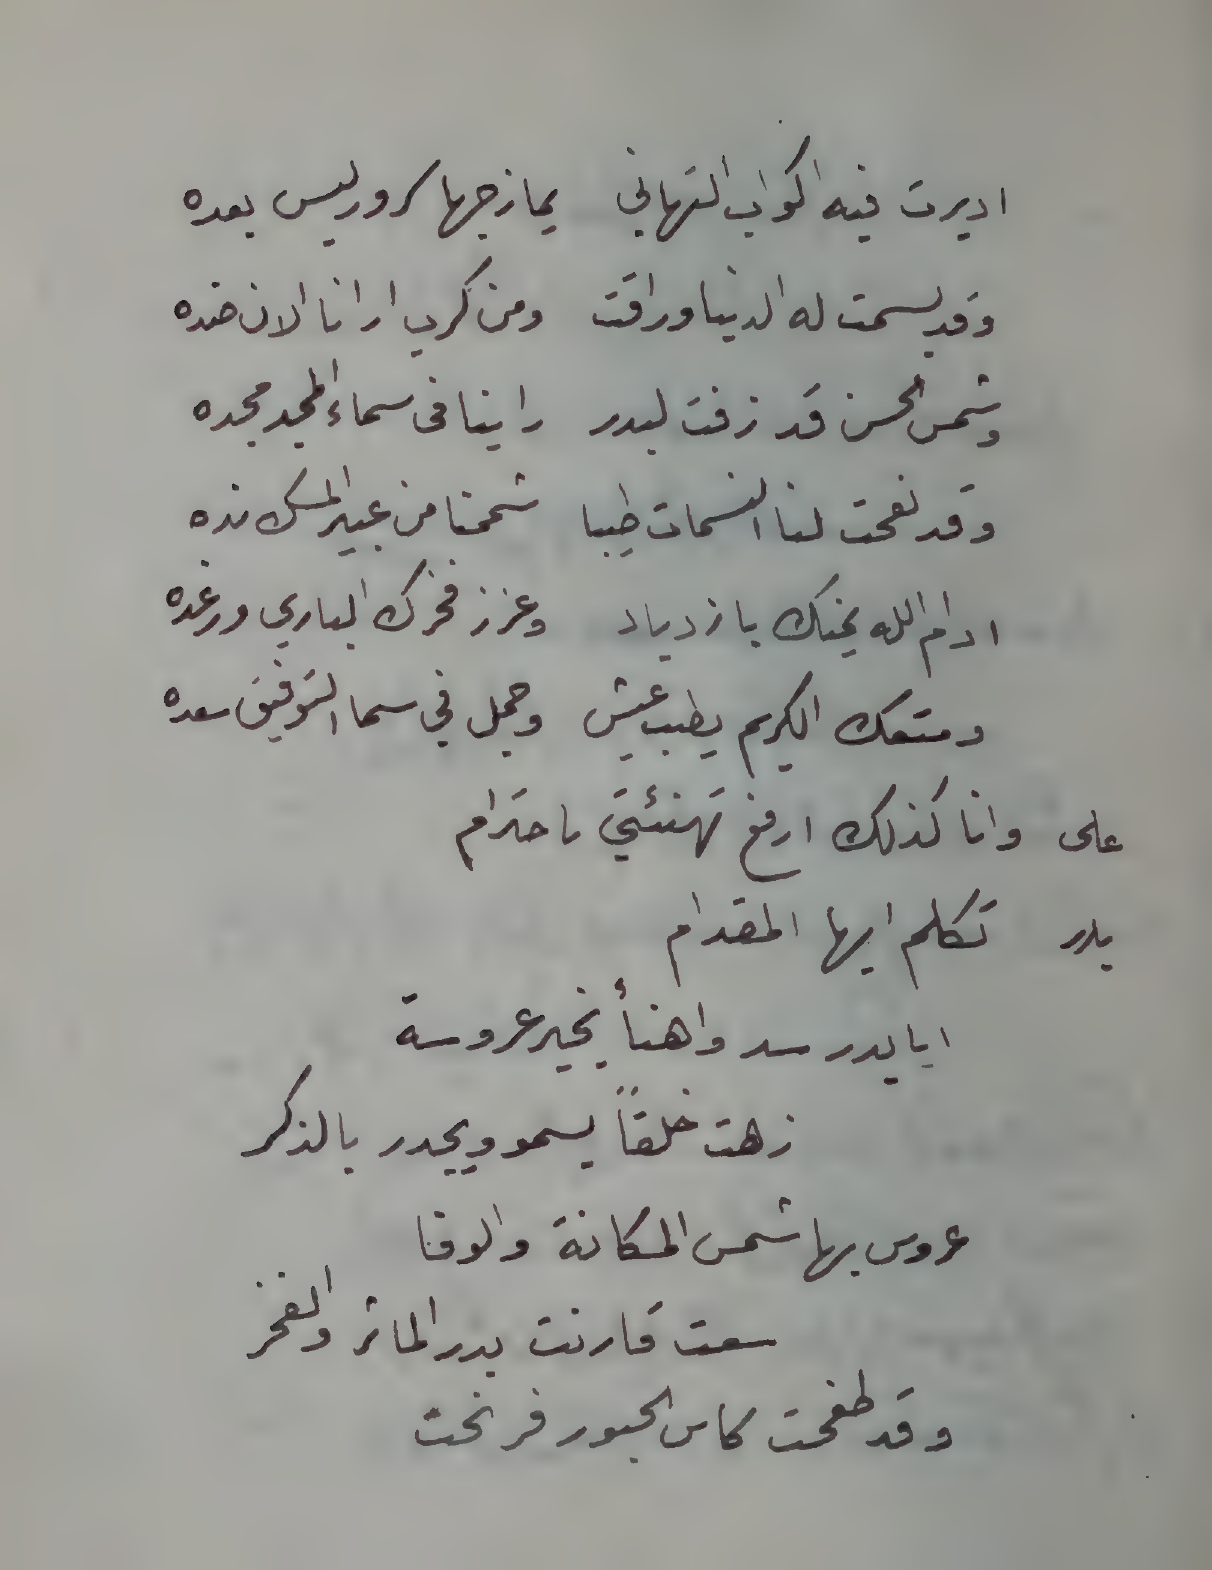 اديرت فيه اكواب التهاني يمازجها سرور ليس بعده
وقد بسمت له الدنيا وراقت ومن كرب ارانا الان ضده
وشمس الحسن قد زفت لبدر راينا فى سماء المجد مجده
وقد نفحت لنا النسمات طيبا شممنا من عبير المسك نده
ادام الله يمنك بازدياد وعزز فخرك الباري ورغده
ومتعك الكريم بطيب عيش وجمل في سما التوفيق سعده
على وانا كذلك ارفع تهنئتي باحترام
بدر تكلم ايها المقدام
ايا بدر سد واهنأ بخير عروسة
زهت خلقاً يسمو ويجدر بالذكر
عروس بها شمس المكانة والوفا
سعت قارنت بدر الماثر والفخر
وقد طفحت كاس الحبور فرنحت